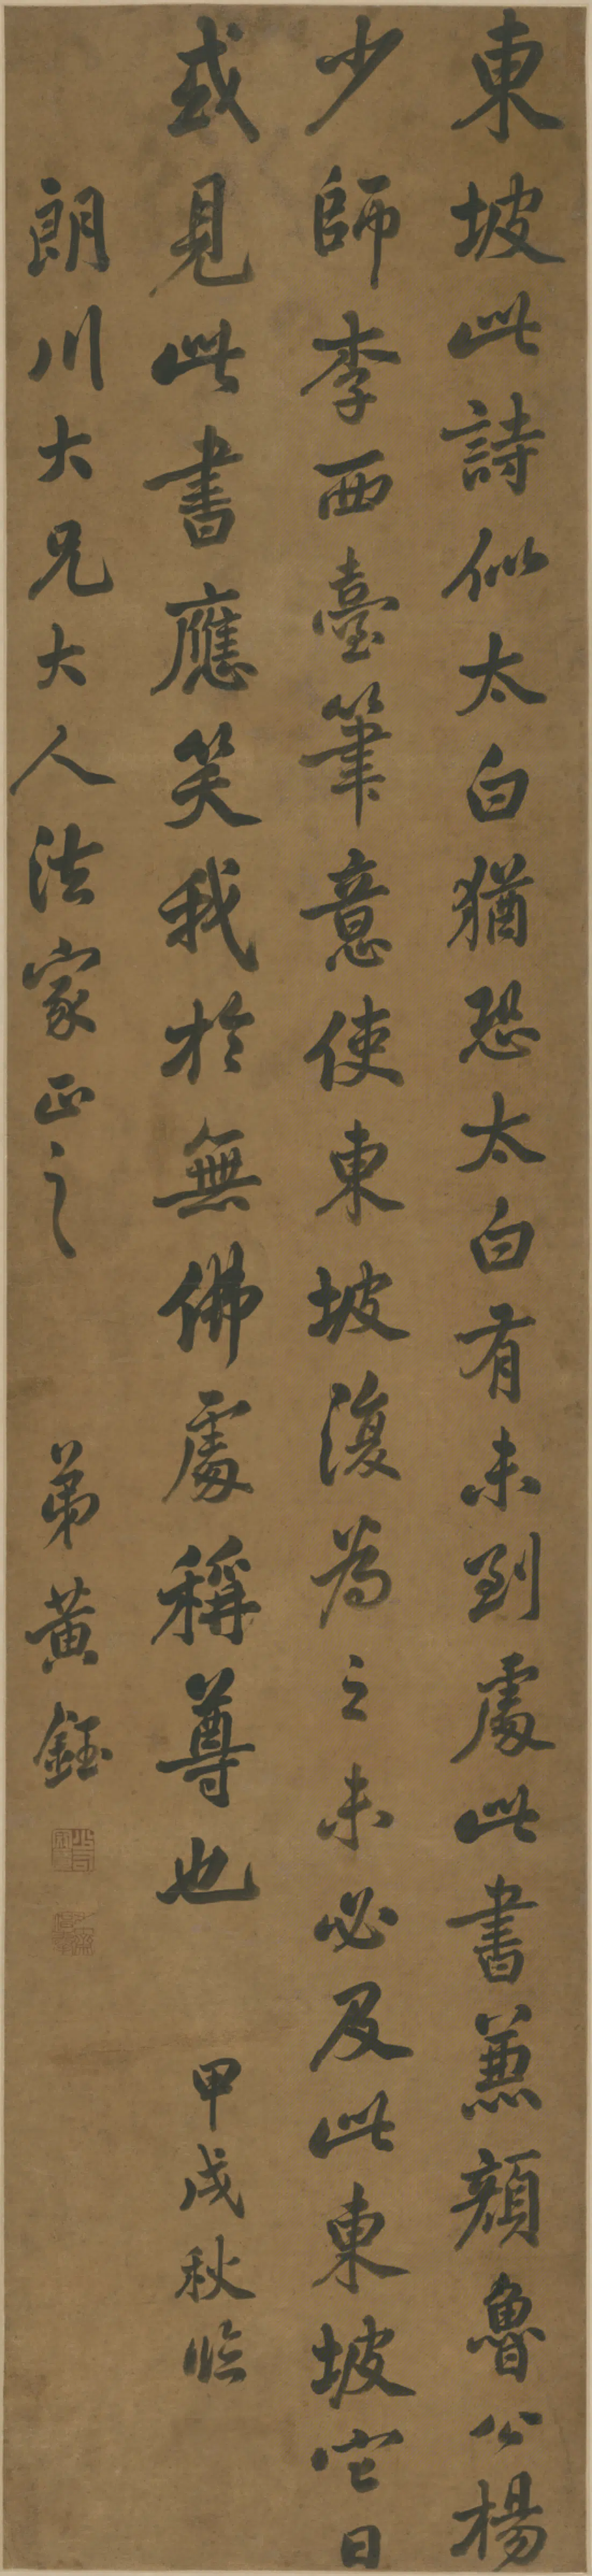 東坡此詩似太白猶恐太白有未到處此書兼顏魯公楊
少師李西臺筆意使東坡復為之未必及此東坡它日
或見此書應笑我於無佛處稱尊也　甲戌秋臨
朗川大兄大人法家正之　弟黃鈺